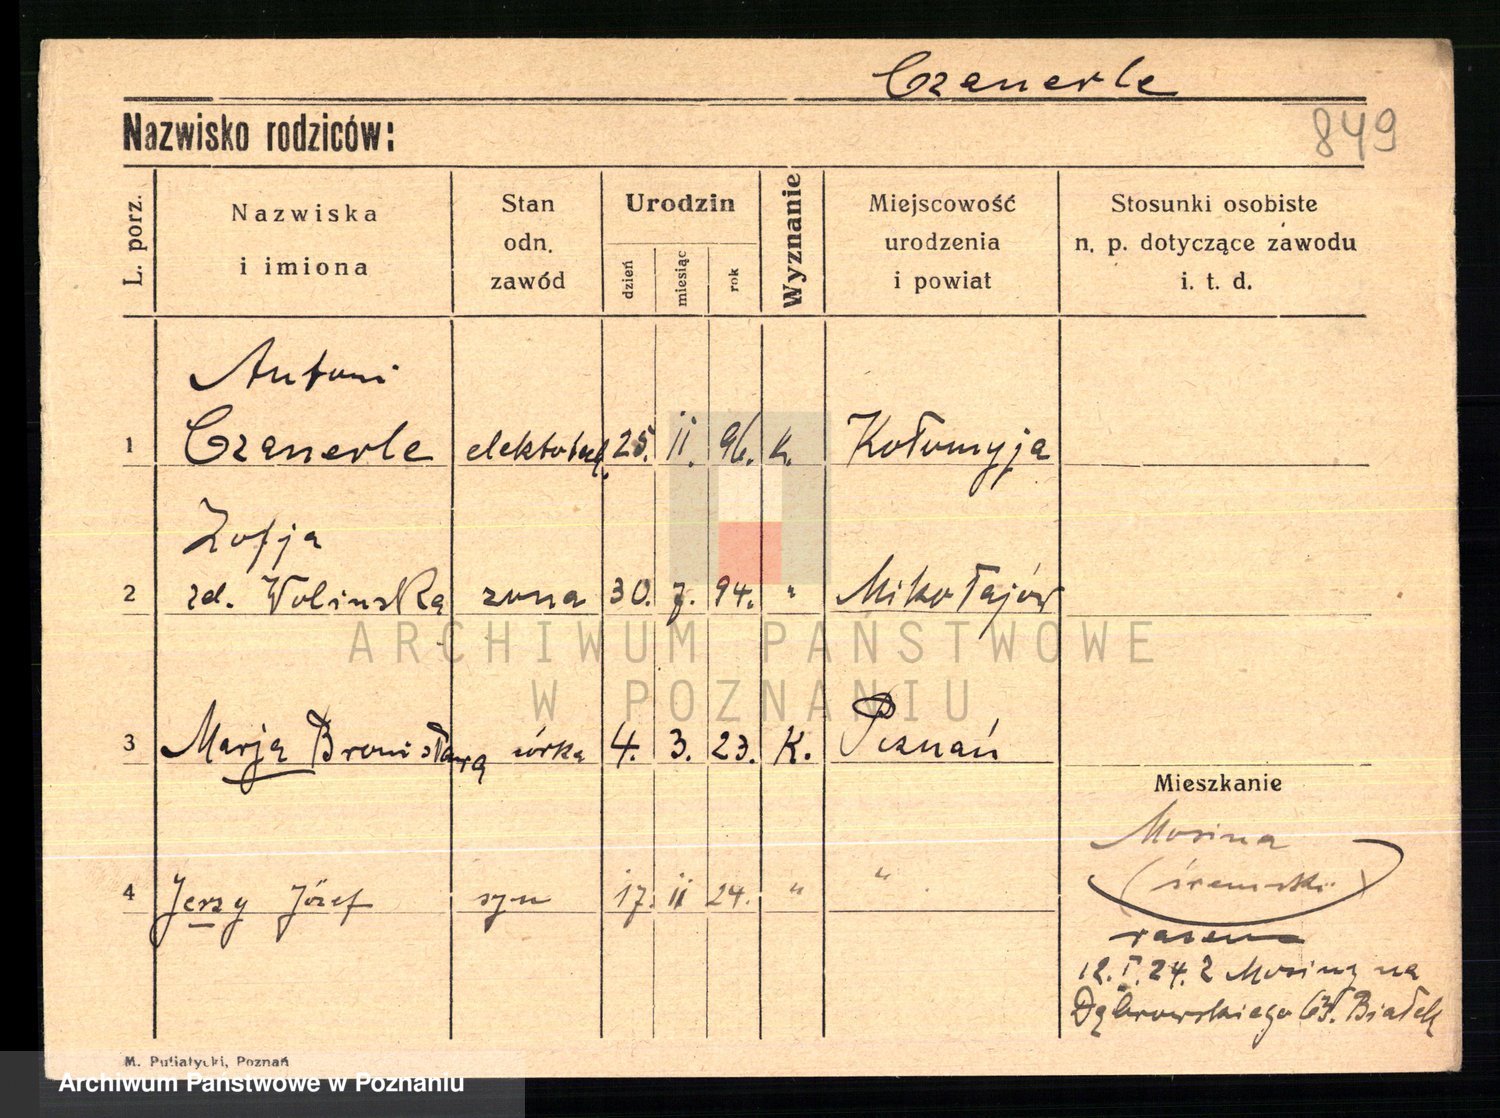 Czanerle
Nazwisko rodziców:
849
L. porz.
Nazwiska
i imiona
Stan
odn.
zawód
Urodzin
dzień
miesiąc
rok
Wyznanie
Miejscowość
urodzenia
i powiat
Stosunki osobiste
n. p. dotyczące zawodu
i. t. d.
Antoni
1 Czanerle elektotech. 25. II. 96. k. Kołomyja
Zofja
2 zd. Wolinska zona 30. 7. 94. " Mikołajów
3 Marja Bronisława córka 4. 3. 23. K. Poznań
Mieszkanie
Mosina
(śremski)
4 Jerzy Józef syn 17. II 24. " "
razem
12. I. 24. z Mosiny na
Dąbrowskiego 63 Białek
ARCHIWUM PAŃSTWOWE
W POZNANIU
M. Putiatycki, Poznań
Archiwum Państwowe w Poznaniu